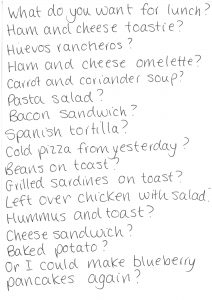 What do you want for lunch?
Ham and cheese toastie?
Huevos rancheros?
Ham and cheese omelette?
Carrot and coriander soup?
Pasta salad?
Bacon sandwich?
Spanish tortilla?
Cold pizza from yesterday?
Beans on toast?
Grilled sardines on toast?
Left over chicken with salad?
Hummus and toast?
Cheese sandwich?
Baked potato?
Or I could make blueberry
pancakes again?